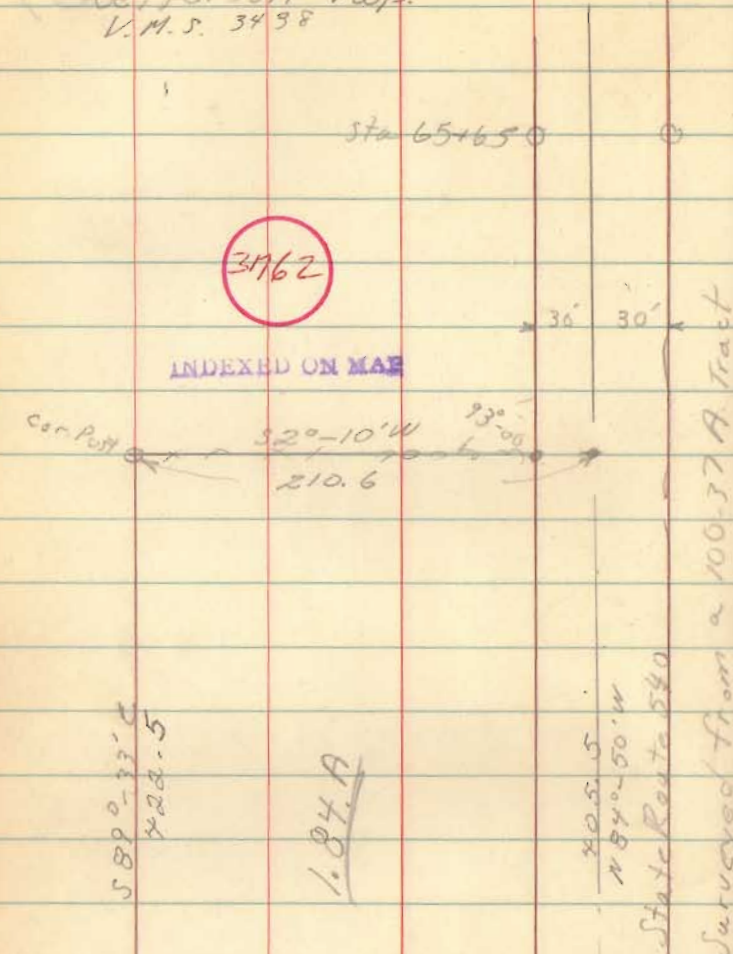 Jefferson Twp.
V.M.S. 3498
Sta 65+65
3762
30' 30'
INDEXED ON MAP
Cor. Post
S2°-10'W
93°-00
210.6
S89°-33'E
422.5
1.84 A
405.5
N84°-50'W
State Route 540
Surveyed from a 100-37 A. Tract